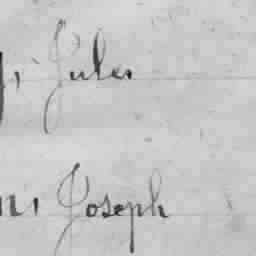 Jules
Joseph